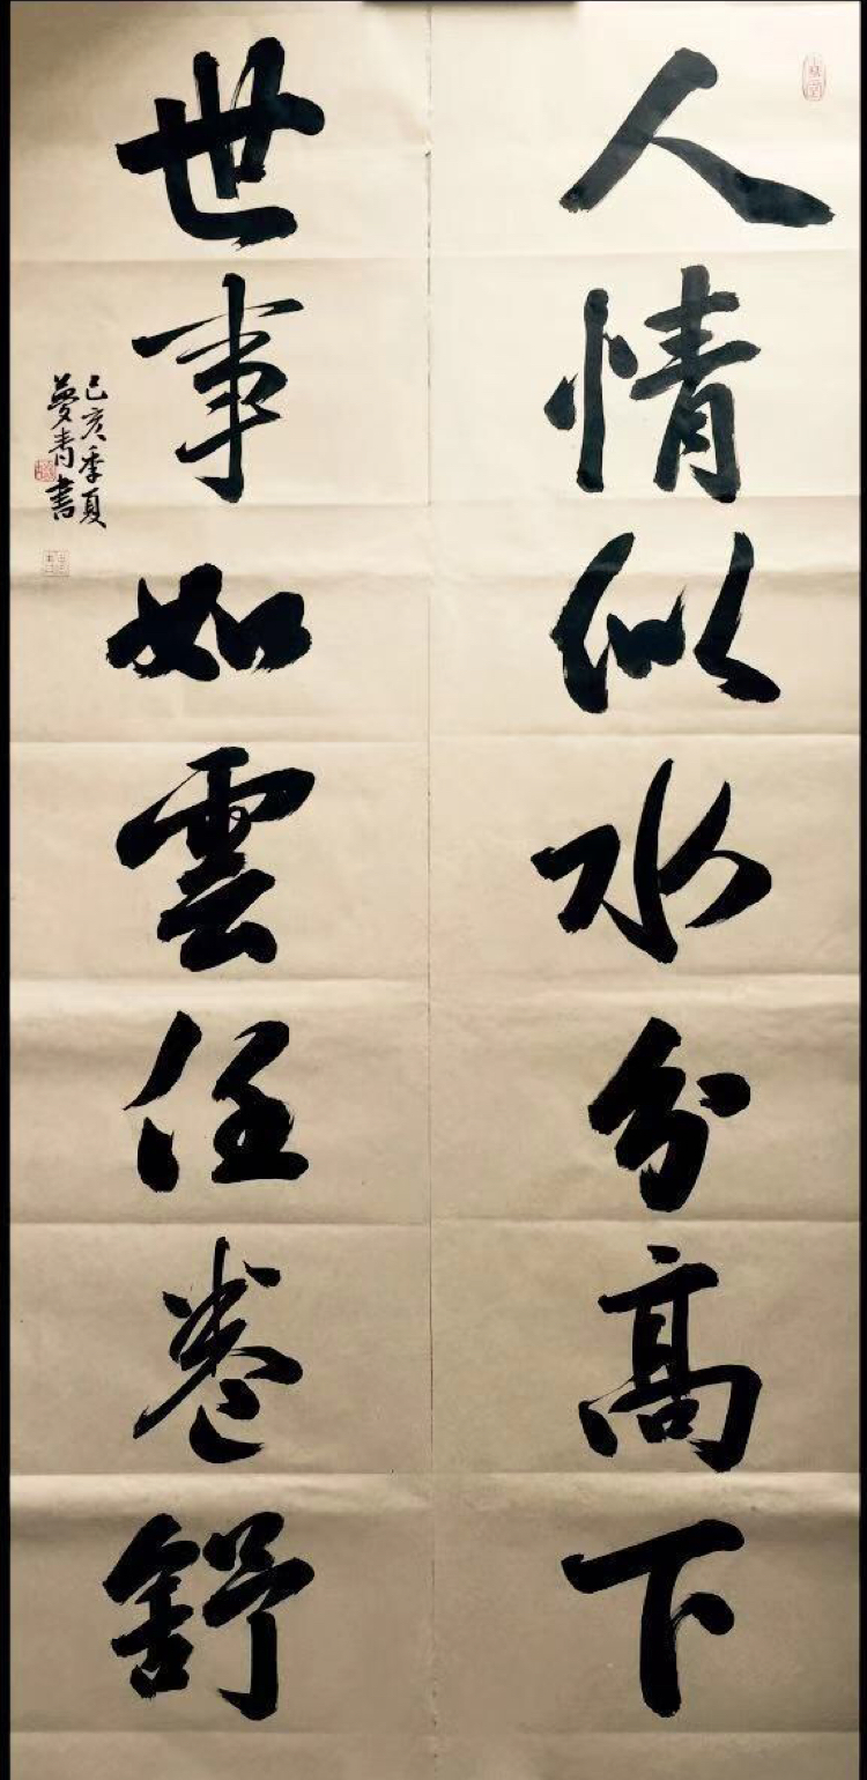 人情似水分高下
世事如雲任卷舒
己亥季夏
夢青書